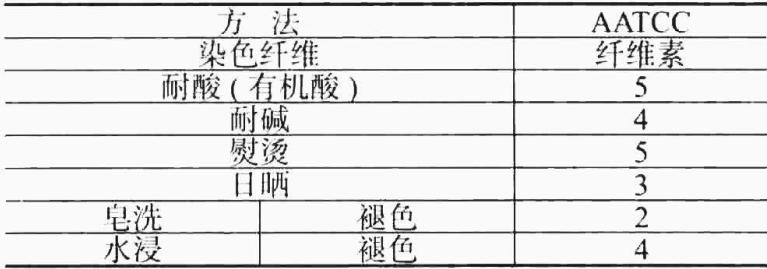 方 法 AATCC
染色纤维 纤维素
耐酸(有机酸) 5
耐碱 4
熨烫 5
日晒 3
皂洗 褪色 2
水浸 褪色 4